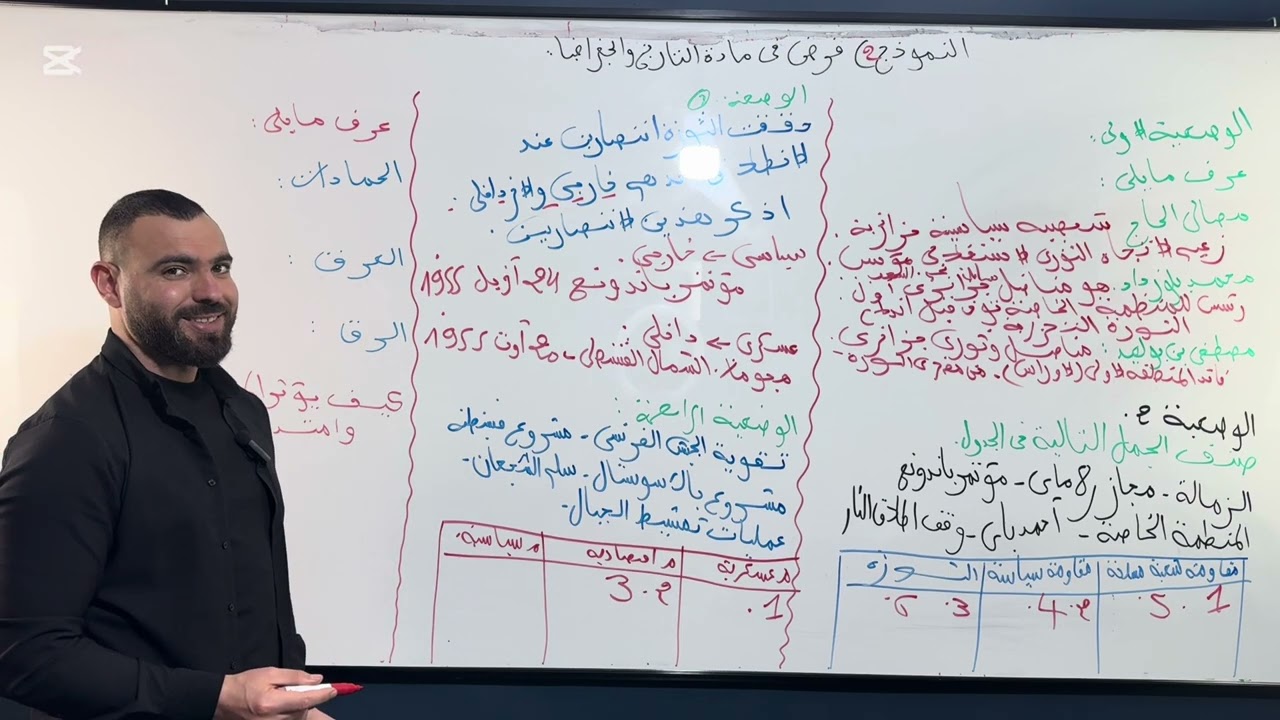 النموذج 2 فرض في مادة التاريخ والجغرافيا.
الوضعية الأولى:
عرف مايلي:
مصالي الحاج شخصية سياسية جزائرية.
زعيم الاتجاه الثوري الاستقلالي
محمد بلوزداد: هو مناضل جزائري أول
رئيس للمنظمة الخاصة
الثورة التحريرية
مصطفى بن بولعيد: مناضل وثوري جزائري
قائد المنطقة الأولى (الأوراس). من مفجري الثورة-
الوضعية 2.
صنف الجمل التالية في الجدول.
الزمالة - مجازر 8 ماي - مؤتمر باندونغ
المنظمة الخاصة - أحمد باي - وقف اطلاق النار
مقاومة شعبية مسلحة
مقاومة سياسية
الثورة
1. 5.
2. 4.
3. 6.
الوضعية: 3
حققت الثورة انتصارين عند
خارجي والآخر داخلي:
اذكر هذين الانتصارين.
سياسي ← خارجي.
مؤتمر باندونغ 24 أفريل 1955
عسكري ← داخلي:
هجومات الشمال القسنطيني - 20 أوت 1955
الوضعية الرابعة:
تقوية الجيش الفرنسي - مشروع قسنطينة
مشروع جاك سوستال - سلم الشجعان -
عمليات تمشيط الجبال -
م عسكرية
م اقتصادية
م سياسية
1.
2. 3
عرف مايلي:
الحمادات:
العرق:
الرق:
كيف يؤثر
وامتد